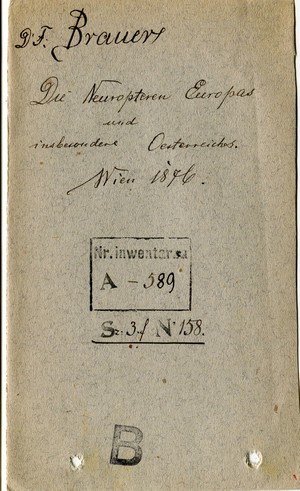 Dr. F. Brauer
Die Neuropteren Europas
und
insbesondere Oesterreichs.
Wien 1876.
Nr. inwentarza
A - 589
S. 3.f N 158.
B